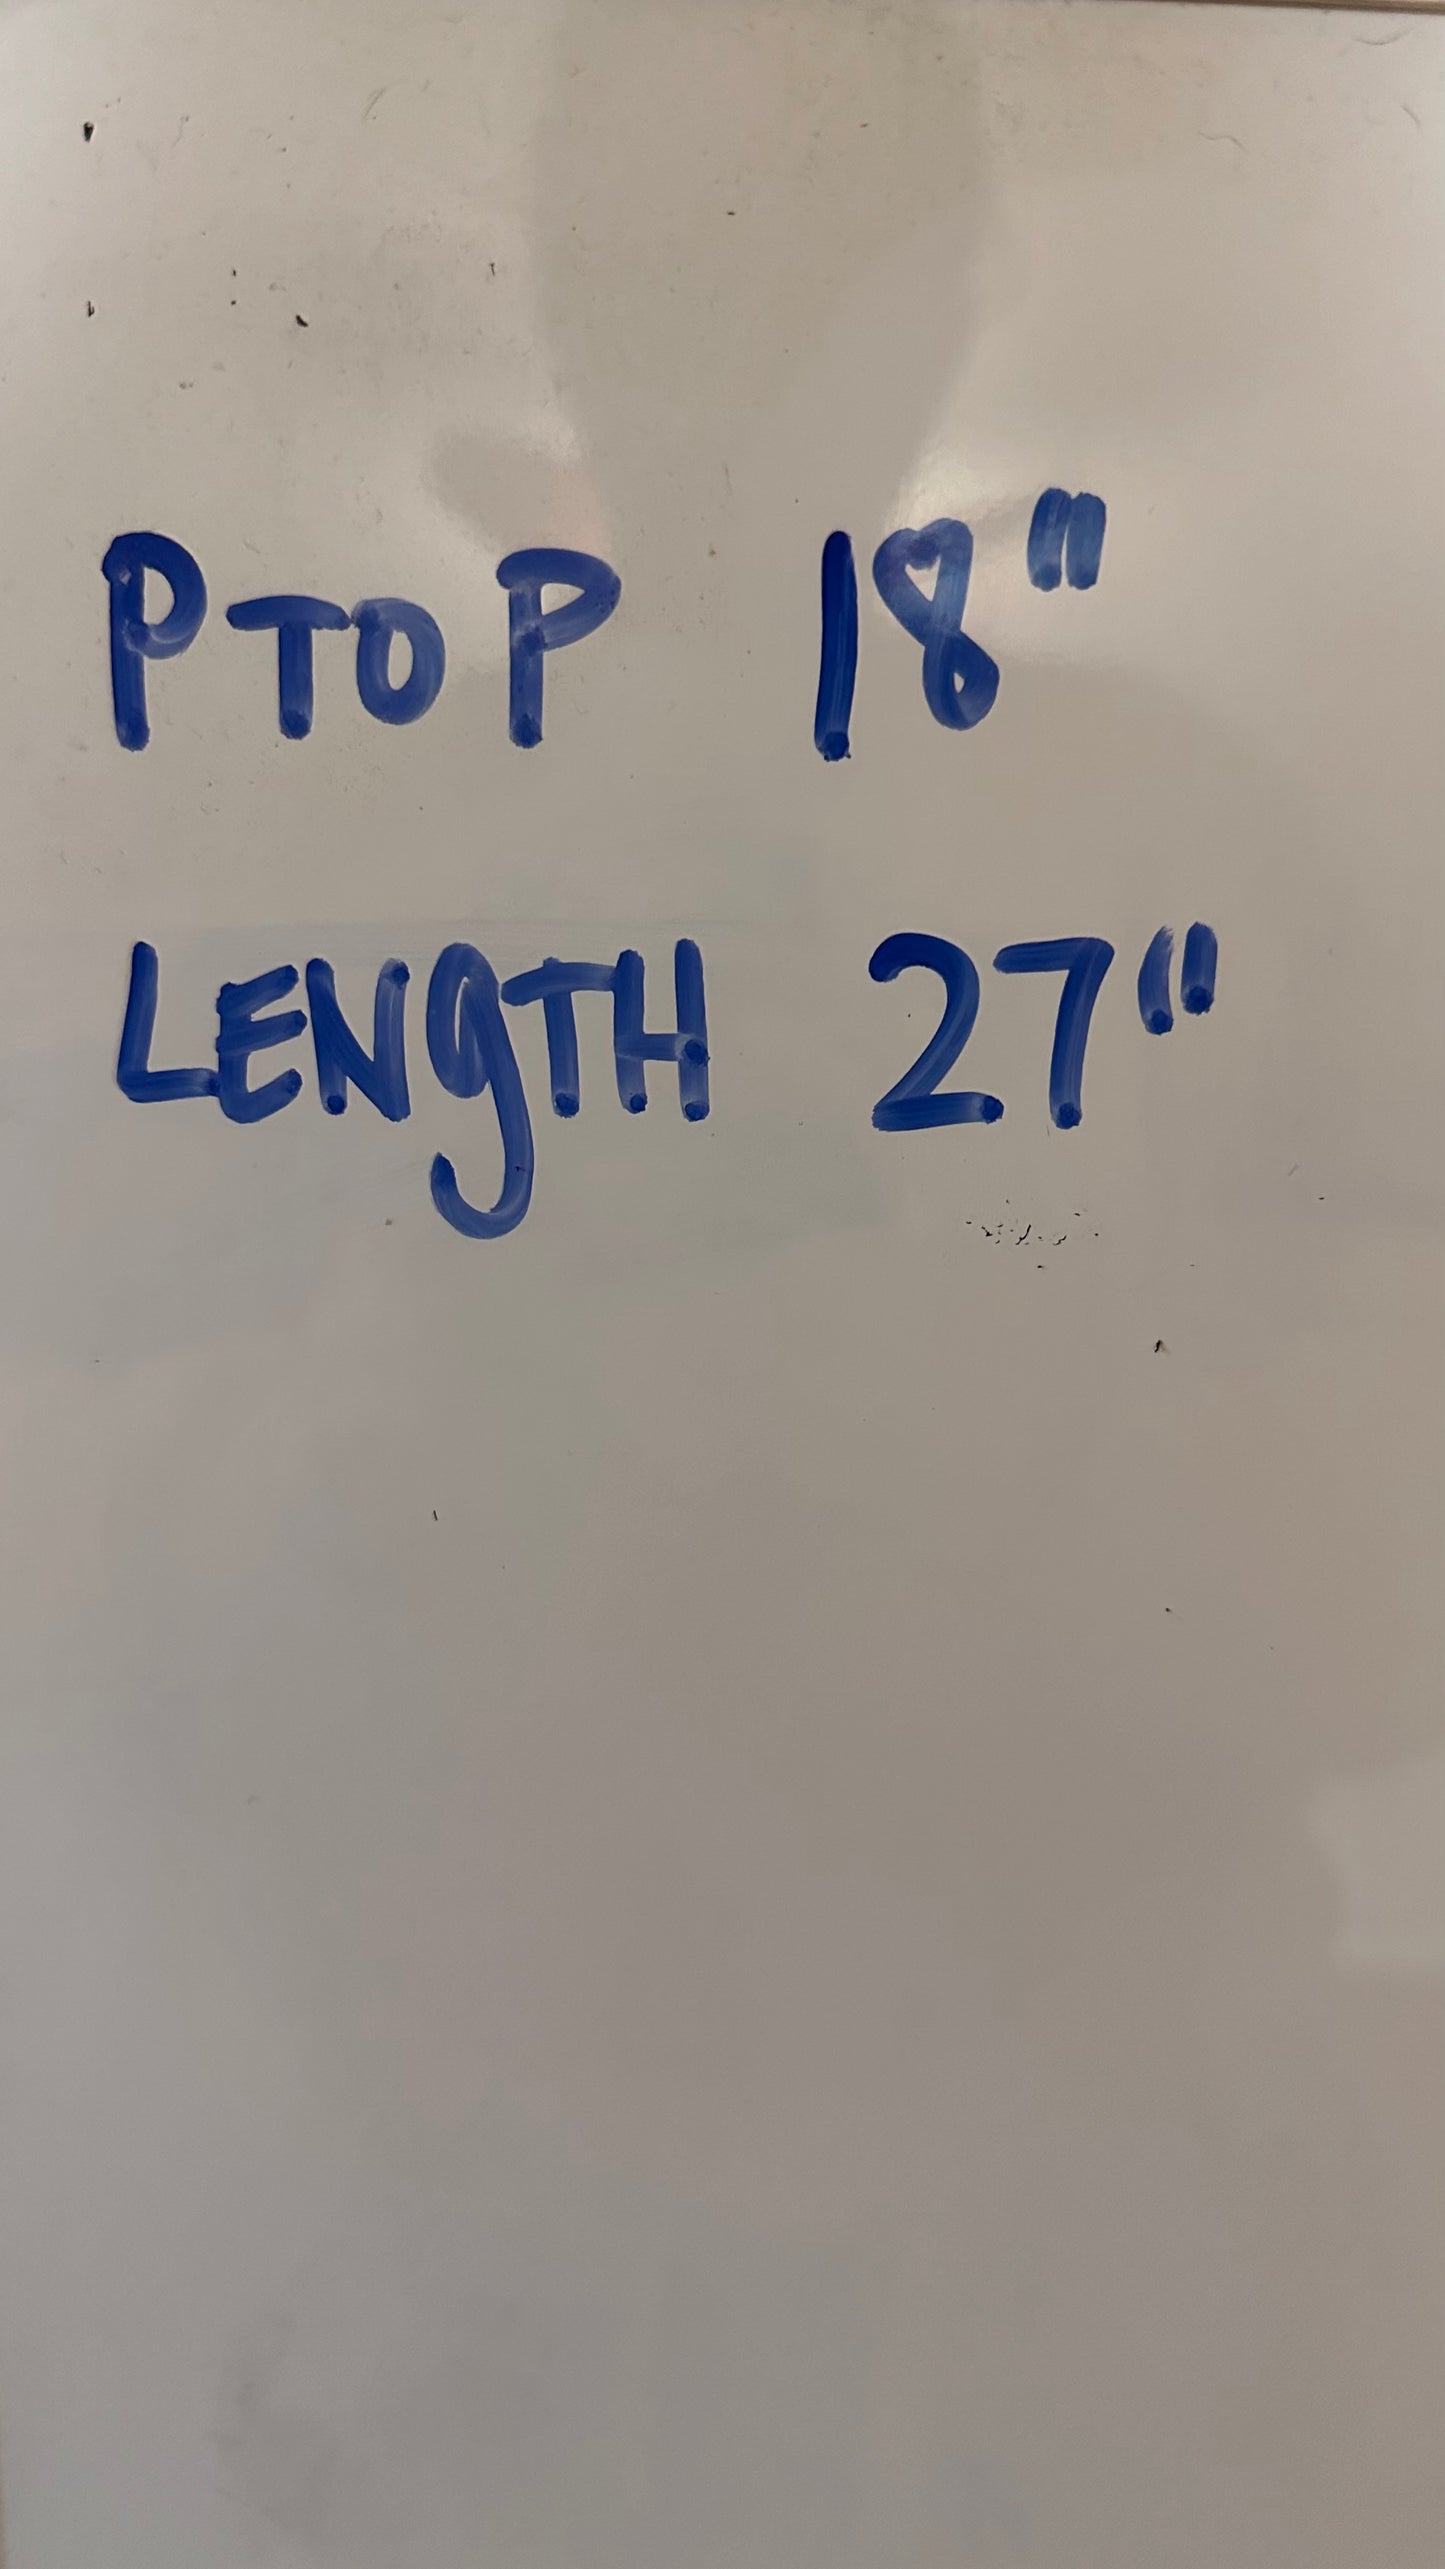 P TO P 18"
LENgTH 27"